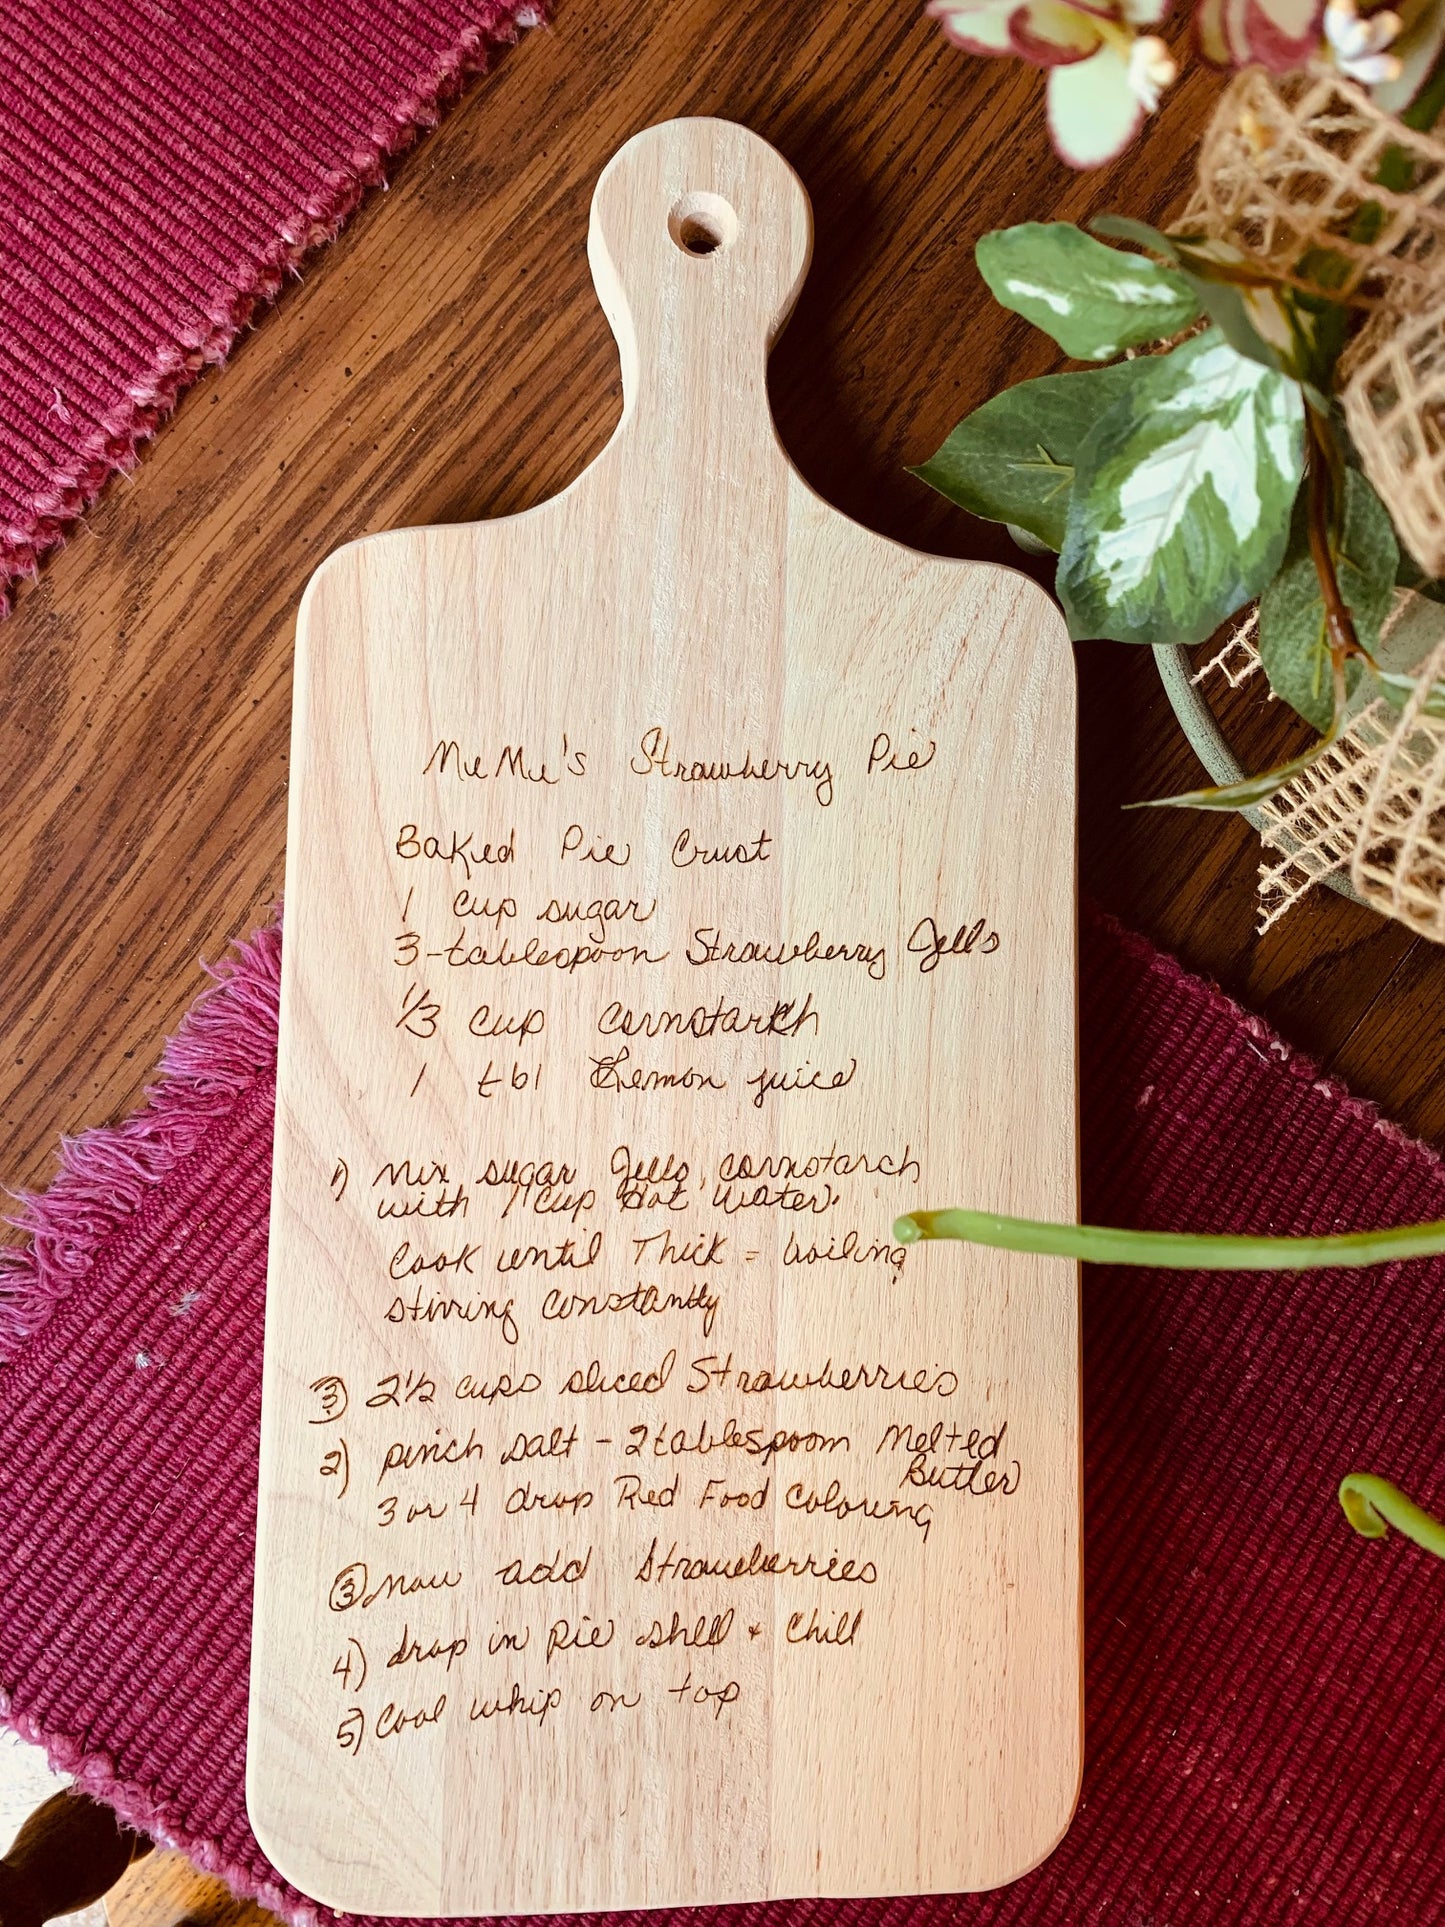 MeMe's Strawberry Pie
Baked Pie Crust
1 cup sugar
3-tablespoon Strawberry Jello
1/3 cup cornstarch
1 tbl Lemon juice
1) Mix sugar Jello, cornstarch
with 1 cup Hot Water.
Cook until Thick = boiling
stirring constantly
3) 2 1/2 cups sliced Strawberries
2) pinch salt - 2 tablespoon Melted
Butter
3 or 4 drop Red Food Coloring
3) Now add Strawberries
4) drop in pie shell + Chill
5) Cool whip on top